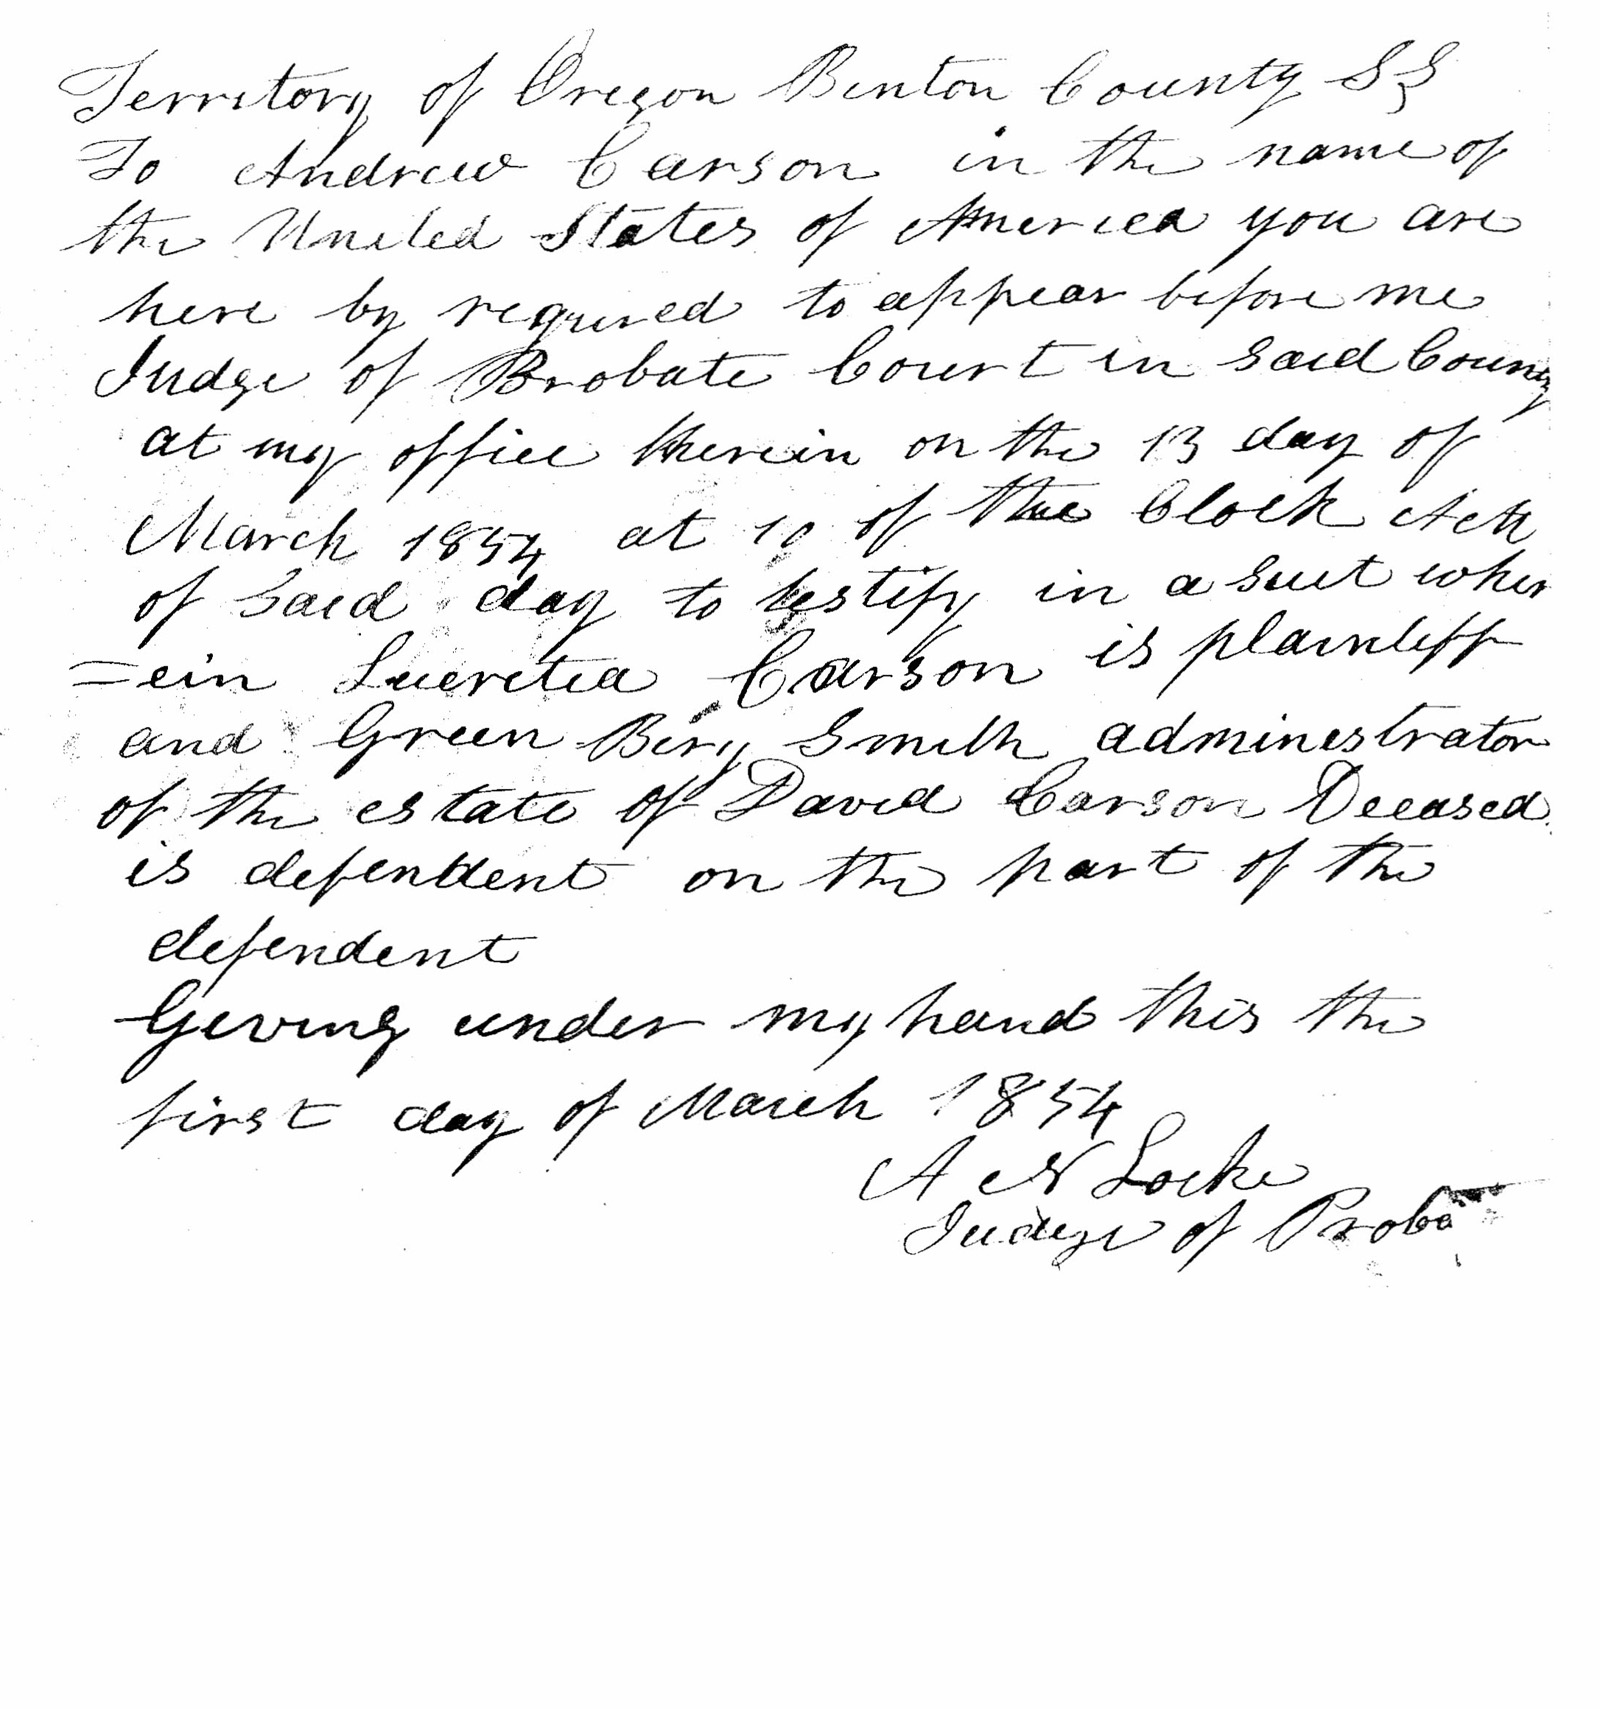 Territory of Oregon Benton County SS
To Andrew Carson in the name of
the United States of America you are
here by required to appear before me
Judge of Probate Court in said County
at my office therein on the 13 day of
March 1854 at 10 of the Clock
of Said day to testify in a suit wher
=ein Lucretia Carson is plaintiff
and Green Bery Smith administrator
of the estate of David Carson Deceased
is defendent on the part of the
defendent
Geving under my hand this the
first day of March 1854
A N Locke
Judge of Proba